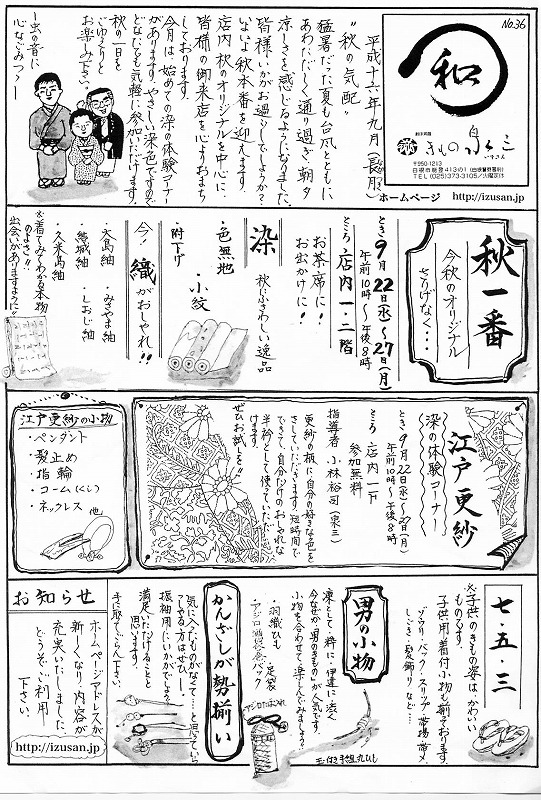 No.36
和
きもの 泉三
いずさん
〒950-1213
TEL (025)373-3105
ホームページ http://izusan.jp
平成十六年九月(長月)
"秋の気配"
猛暑だった夏も台風とともに
あわただしく通り過ぎ、朝夕
涼しさを感じるようになりました。
皆様いかがお過ごしでしょうか?
いよいよ秋本番を迎えます。
店内 秋のオリジナルを中心に
皆様の御来店を心よりおまち
しております。
今月は始めての染の体験コーナー
があります。やさしい染色ですので
どなたでも気軽に参加いただけます。
秋の一日を
ごゆるりと
お楽しみ下さい。
虫の音に
心なごみつ
秋一番
今秋のオリジナル
さりげなく…
とき 9月22日(水)〜27日(月)
午前10時〜午後8時
ところ 店内一・二階
お茶席に!
お出かけに!
染 秋にふさわしい逸品
・色無地
・小紋
・附下げ
今!織がおしゃれ!!
・大島紬
・みやま紬
・結城紬
・しおじ紬
・久米島紬
※着てみてわかる本物
のよさとの
出会いがありますように
江戸更紗
染の体験コーナー
とき 9月22日(水)〜27(月)
午前10時〜午後8時
ところ 店内一F
参加無料
指導者 小林裕司(泉三)
更紗の柄に自分の好きな色を
さしていただきます。短時間で
できて、自分だけのおしゃれな
半衿として使っていただけます。
ぜひお試しを"
江戸更紗の小物
・ペンダント
・髪止め
・指輪
・コーム(くし)
・ネックレス
他
七・五・三
※子供のきもの姿は、かわいい
ものです。
子供用着付小物も揃っております。
ゾウリ・バック・スリップ・帯揚・帯〆
しごき・髪飾りなど…
男の小物
凛として 粋に 伊達に渋く
今なぜか「男のきもの」が人気です。
小物を合わせて楽しんでみましょう?
・羽織ひも
・足袋
・アジロ信玄袋バック
アジロ
玉付き手組丸ひも
かんざしが勢揃い
"気に入ったものがなくて…と思っていらっ
しゃる方はぜひ!
振袖用にいかがでしょう?
満足いただけることと
思います。
手に取ってごらん下さい。
お知らせ
ホームページアドレスが
新しくなり、内容が
充実いたしました。
どうぞご利用
下さい。
http://izusan.jp